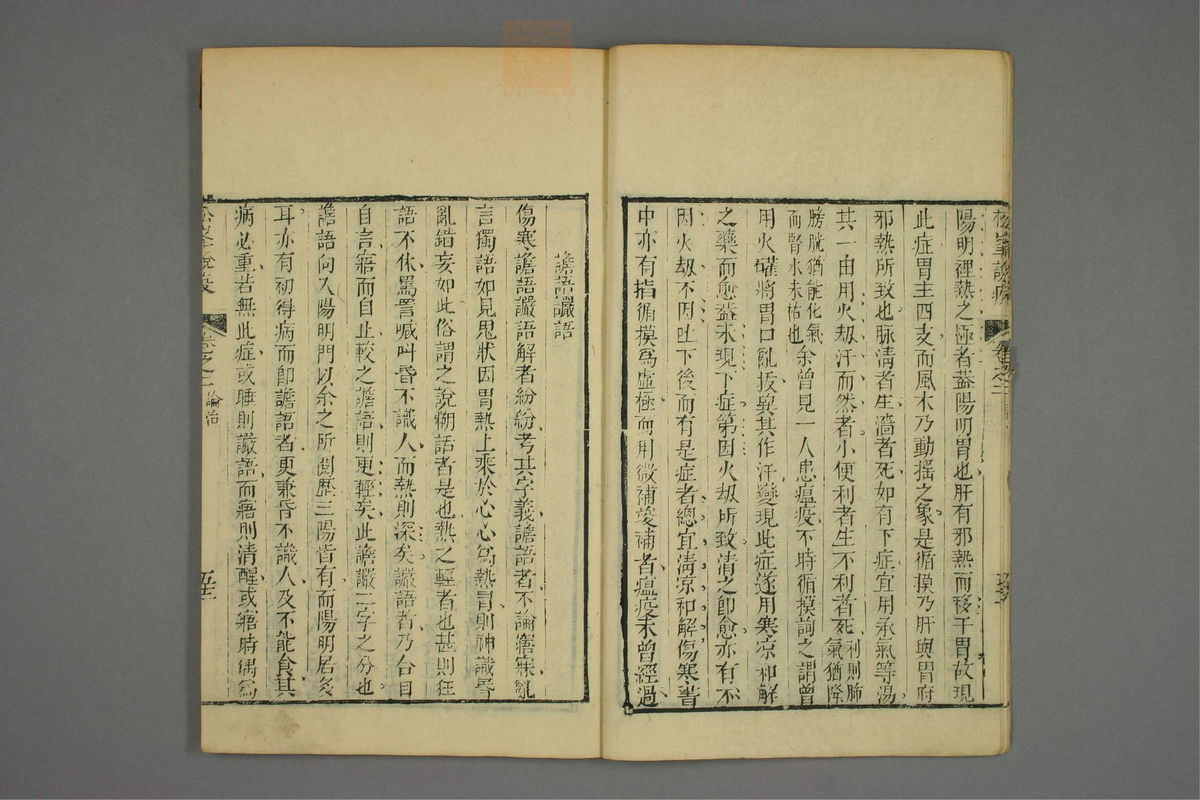 松峯說疫
卷之二
五十一
陽明裡熱之極者葢陽明胃也肝有邪熱而移于胃故現
此症胃主四支而風木乃動搖之象是循摸乃肝與胃府
邪熱所致也脉淸者生濇者死如有下症宜用承氣等湯
其一由用火刼汗而然者小便利者生不利者死利則肺氣猶降
膀胱猶能化氣而腎水未枯也余曾見一人患瘟疫不時循摸詢之謂曾
用火礶將胃口亂拔兾其作汗變現此症遂用寒凉和解
之藥而愈葢未現下症第因火刼所致清之卽愈亦有不
因火刼不因吐下後而有是症者總宜淸凉和解傷寒書
中亦有指循摸爲虛極而用微補峻補者瘟疫未曾經過
譫語讝語
傷寒譫語讝語解者紛紛考其字義譫語者不論寤寐亂
言獨語如見鬼狀因胃熱上乘於心心爲熱冒則神識昏
亂錯妄如此俗謂之說糊語者是也熱之輕者也甚則狂
語不休罵詈喊叫昏不識人而熱則深矣讝語者乃合目
自言寤而自止較之譫語則更輕矣此譫讝二字之分也
譫語向入陽明門以余之所閱歷三陽皆有而陽明居多
耳亦有初得病而卽譫語者更兼昏不識人及不能食其
病必重若無此症或睡則讝語而寤則清醒或寤時偶爲
松峯說疫
卷之二
論治
五十二